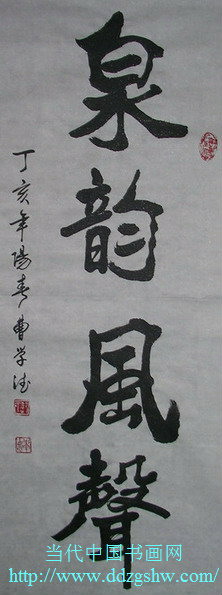 泉韵風聲
丁亥年陽春曹学德
当代中国书画网
http://www.ddzgshw.com/